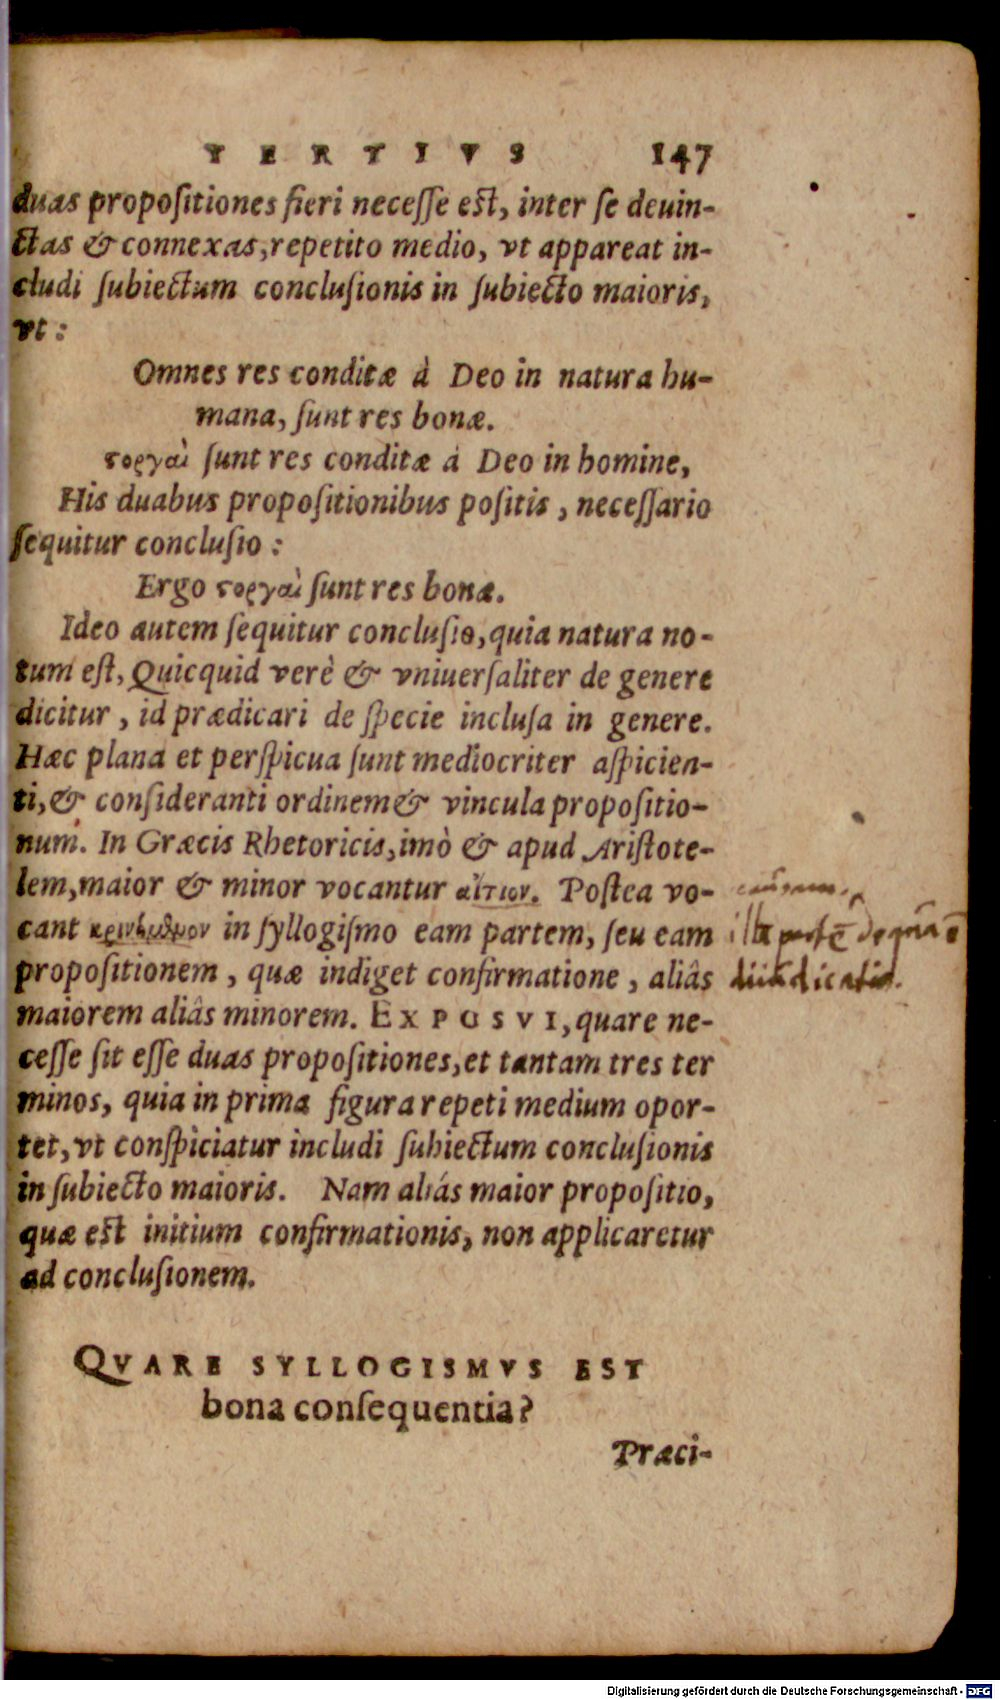 TERTIVS 147
duas propoſitiones fieri neceſſe eſt, inter ſe deuin-
ctas & connexas, repetito medio, vt appareat in-
cludi ſubiectum concluſionis in ſubiecto maioris,
vt:
Omnes res conditæ à Deo in natura hu-
mana, ſunt res bonæ.
ςοργαὶ ſunt res conditæ à Deo in homine,
His duabus propoſitionibus poſitis, neceſſario
ſequitur concluſio:
Ergo ςοργαὶ ſunt res bonæ.
Ideo autem ſequitur concluſio, quia natura no-
tum eſt, Quicquid verè & vniuerſaliter de genere
dicitur, id prædicari de ſpecie incluſa in genere.
Hæc plana et perſpicua ſunt mediocriter aſpicien-
ti, & conſideranti ordinem & vincula propoſitio-
num. In Græcis Rhetoricis, imò & apud Ariſtote-
lem, maior & minor vocantur αἴτιον. Poſtea vo-
cant κρινόμενον in ſyllogiſmo eam partem, ſeu eam
propoſitionem, quæ indiget confirmatione, aliâs
maiorem aliâs minorem. EXPOSVI, quare ne-
ceſſe ſit eſſe duas propoſitiones, et tantam tres ter
minos, quia in prima figura repeti medium opor-
tet, vt conſpiciatur includi ſubiectum concluſionis
in ſubiecto maioris. Nam aliâs maior propoſitio,
quæ eſt initium confirmationis, non applicaretur
ad concluſionem.
QVARE SYLLOGISMVS EST
bona conſequentia?
Præci-
Digitalisierung gefördert durch die Deutsche Forschungsgemeinschaft - DFG